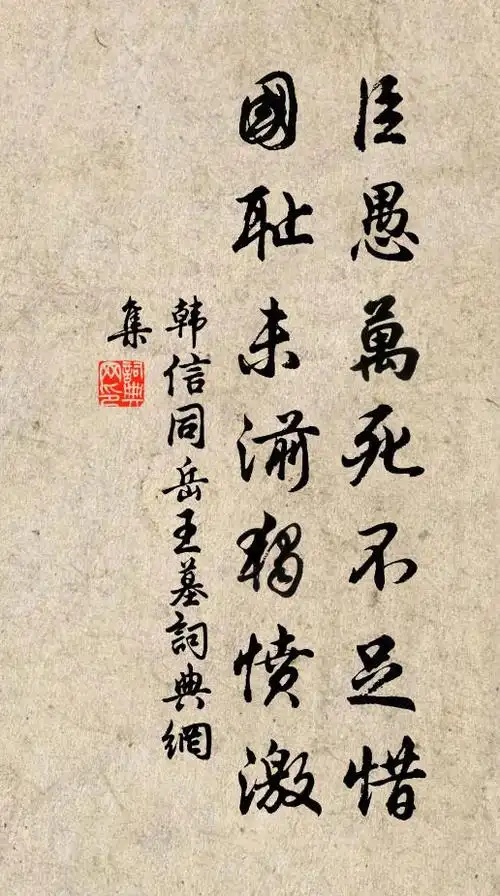 臣愚萬死不足惜
國耻未湔獨憤激
韩信同岳王墓詞典網
集
詞典网印